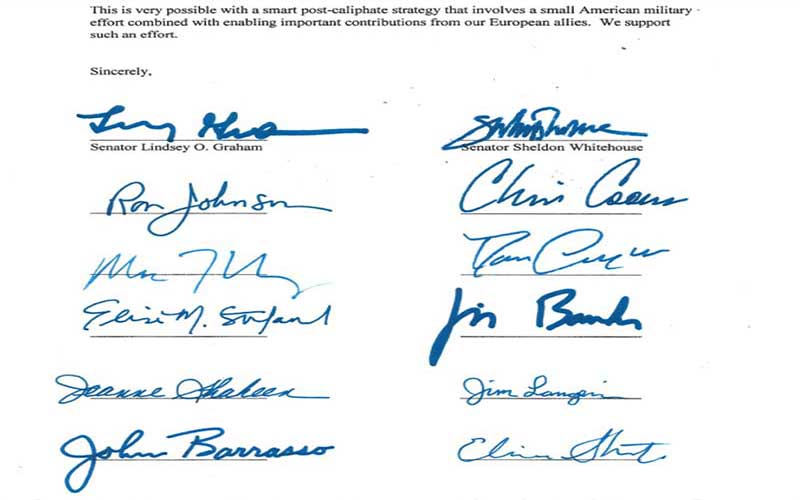 This is very possible with a smart post-caliphate strategy that involves a small American military
effort combined with enabling important contributions from our European allies. We support
such an effort.
Sincerely,
Senator Lindsey O. Graham
Senator Sheldon Whitehouse
Ron Johnson
Chris Coons
Elise M. Stefanik
Jim Banks
Jeanne Shaheen
Jim Langevin
John Barrasso